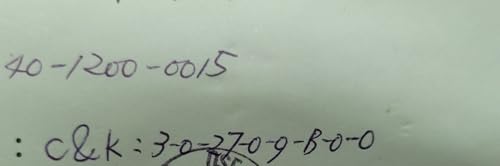 40-1200-0015
: C&K: 3-0-27-0-9-B-0-0